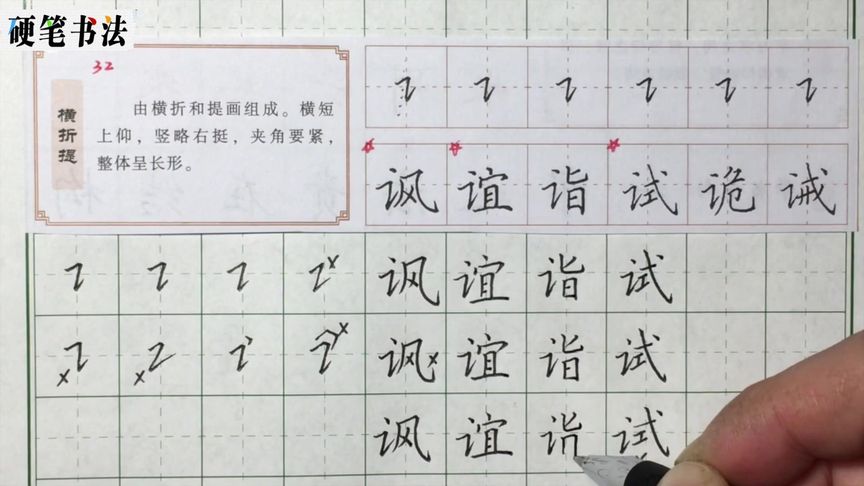 硬笔书法
32
横折提
由横折和提画组成。横短
上仰，竖略右挺，夹角要紧，
整体呈长形。
讽 谊 诣 试 诡 诫
讽 谊 诣 试
讽 谊 诣 试
讽 谊 诣 试